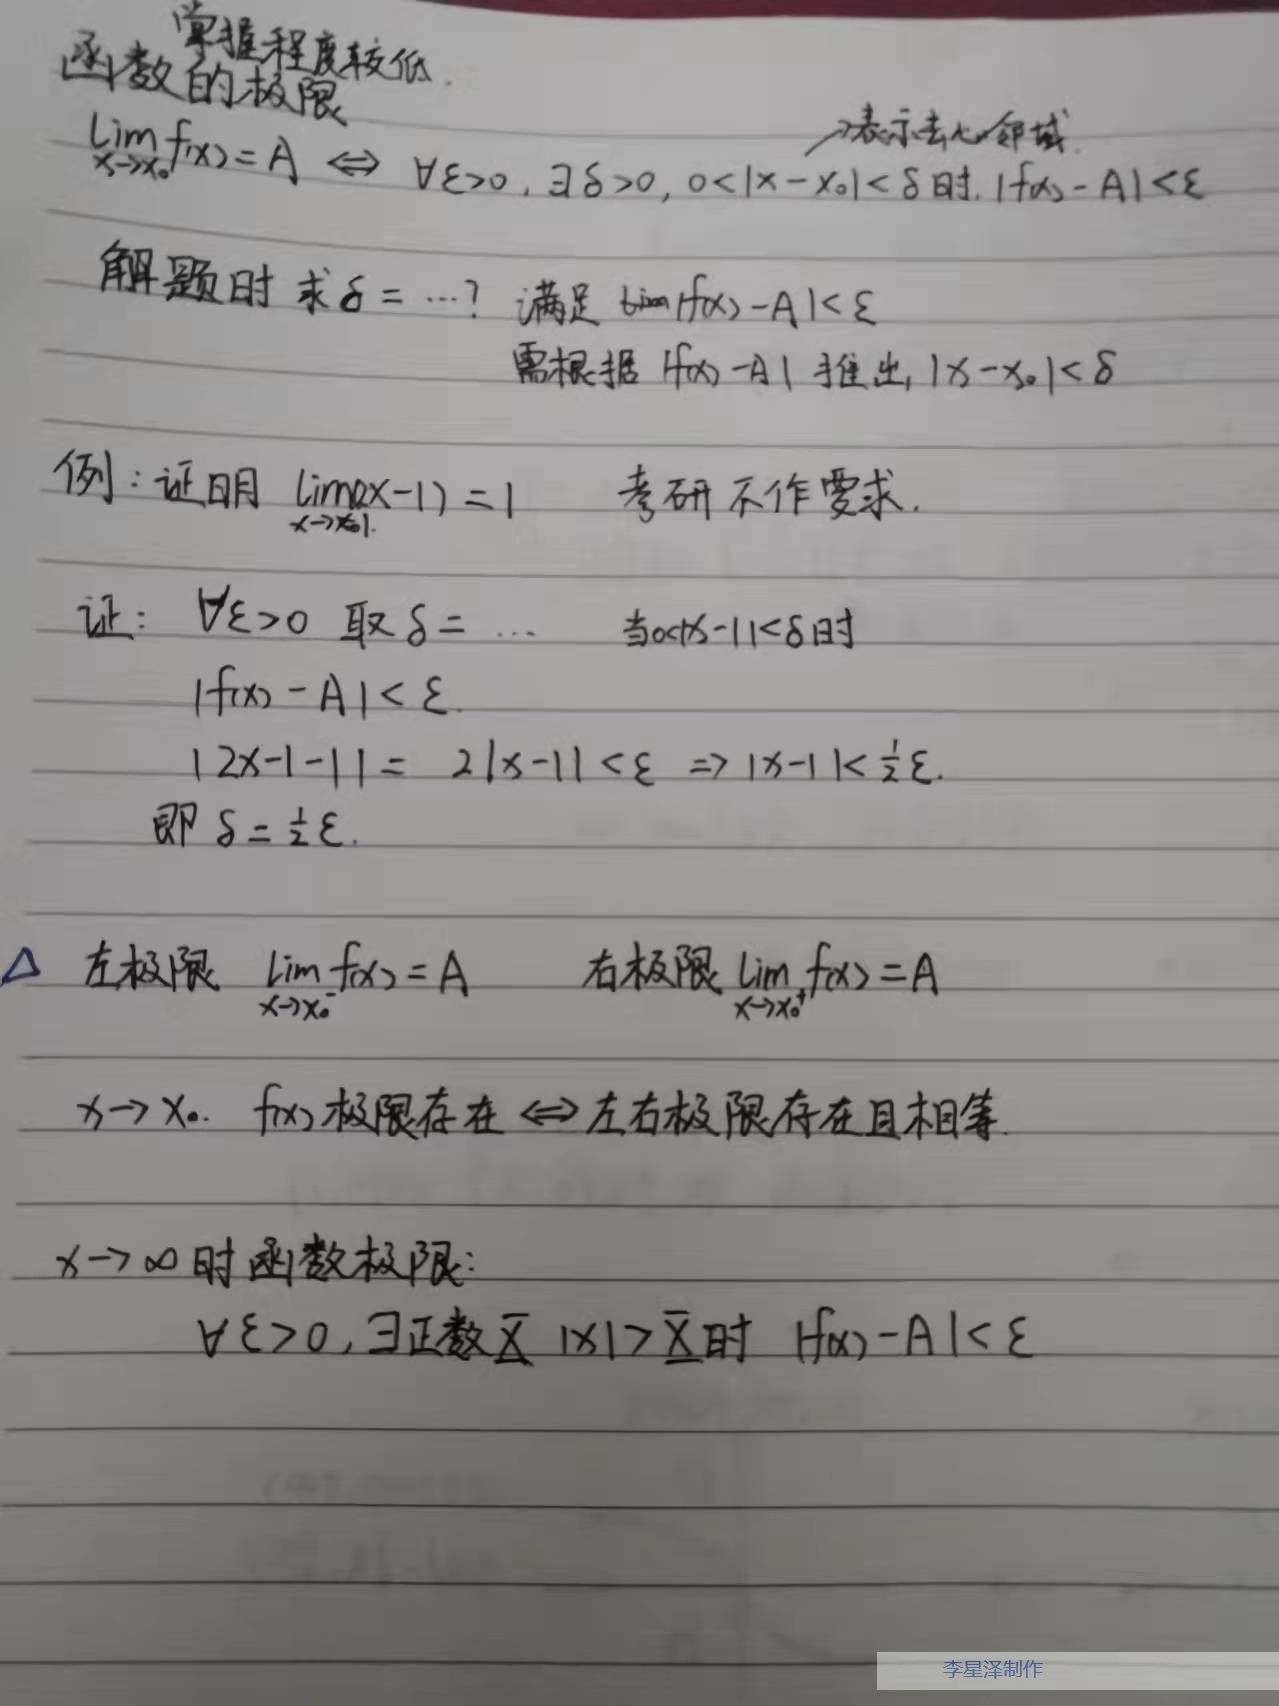 掌握程度较低.
函数的极限
lim f(x) = A ⇔ ∀ε>0, ∃δ>0, 0<|x-x₀|<δ时, |f(x)-A|<ε
x→x₀
→表示去心邻域.
解题时求δ=…? 满足 lim|f(x)-A|<ε
需根据 |f(x)-A| 推出, |x-x₀|<δ
例: 证明 lim(2x-1)=1 考研不作要求.
x→1.
证: ∀ε>0 取δ= … 当0<|x-1|<δ时
|f(x)-A|<ε.
|2x-1-1|= 2|x-1|<ε ⇒ |x-1|<½ε.
即δ=½ε.
△ 左极限 lim f(x)=A 右极限 lim f(x)=A
x→x₀⁻ x→x₀⁺
x→x₀. f(x)极限存在 ⇔ 左右极限存在且相等.
x→∞时函数极限:
∀ε>0, ∃正数X |x|>X时 |f(x)-A|<ε
李星泽制作